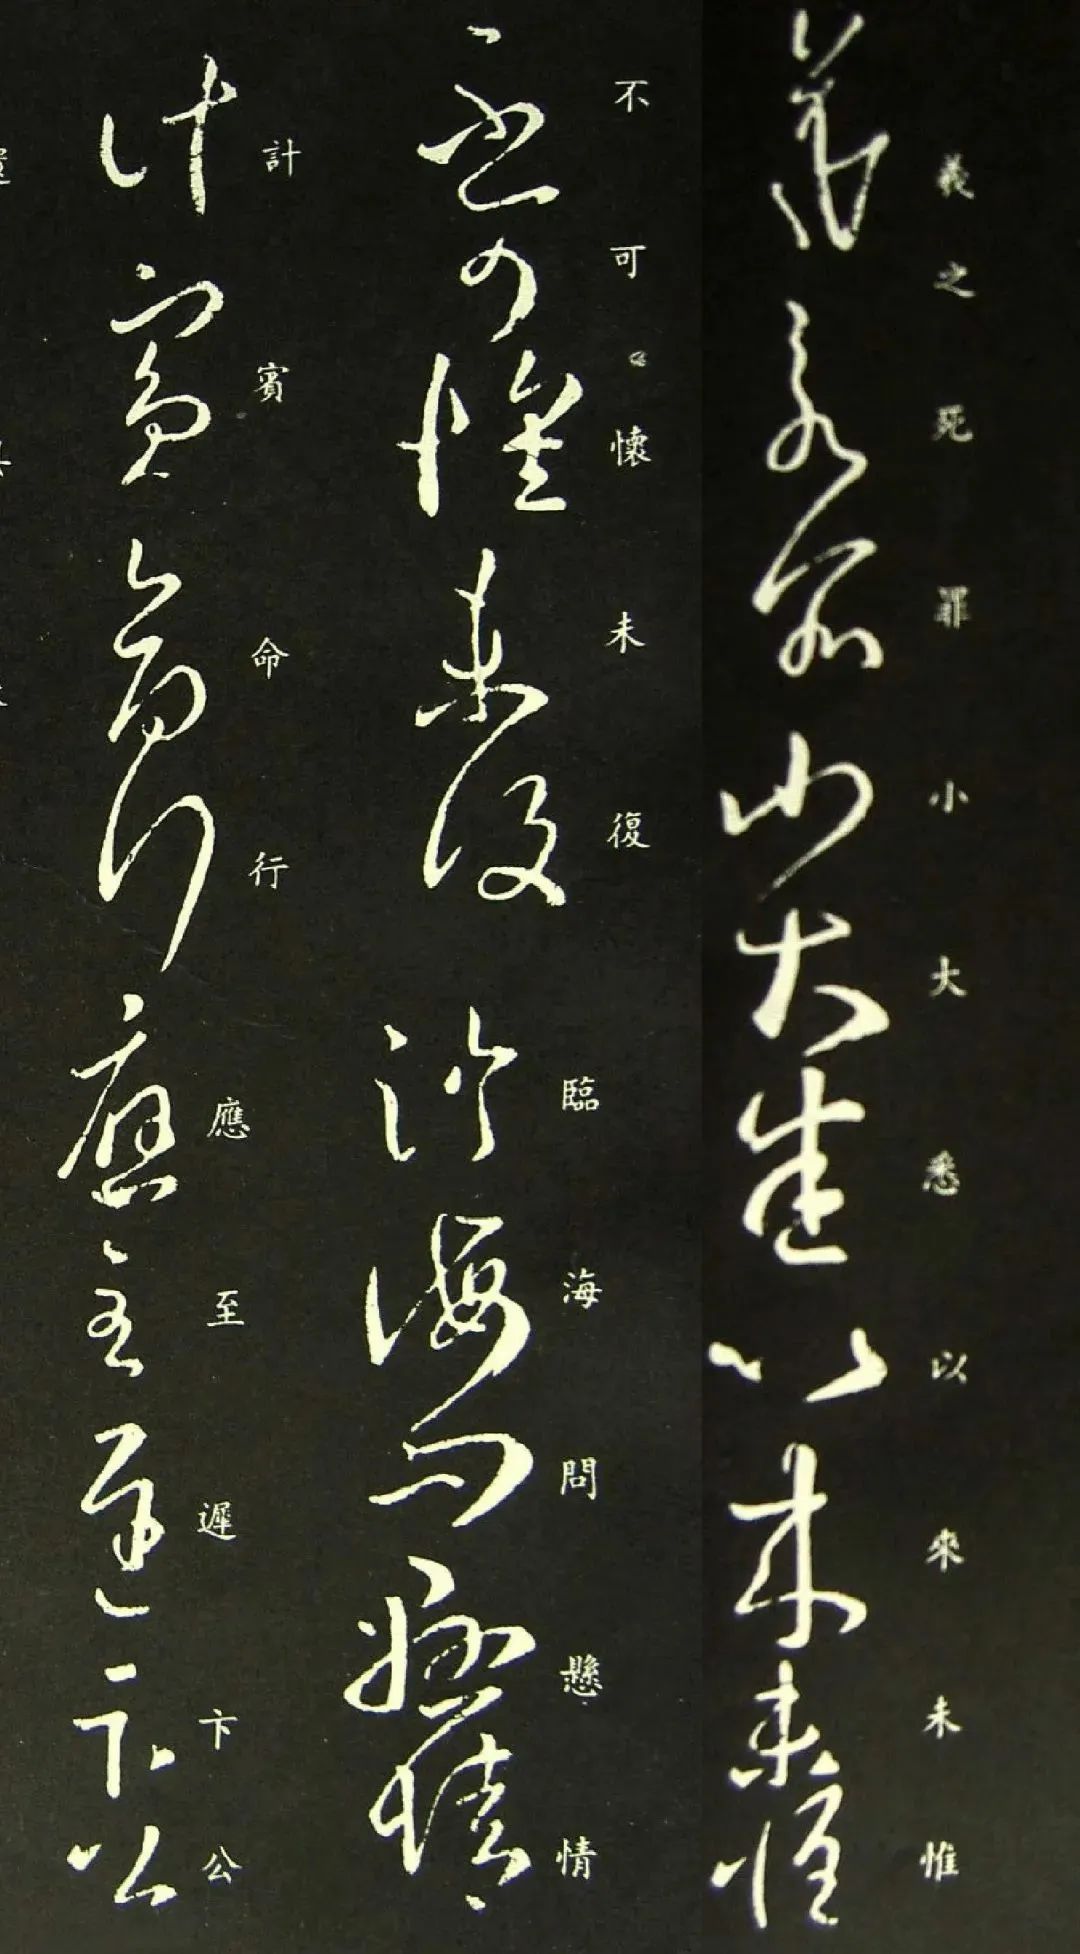 羲之死罪小大悉以來未惟
不可〻懷未復臨海問懸情
計賓命行應至遲卞公